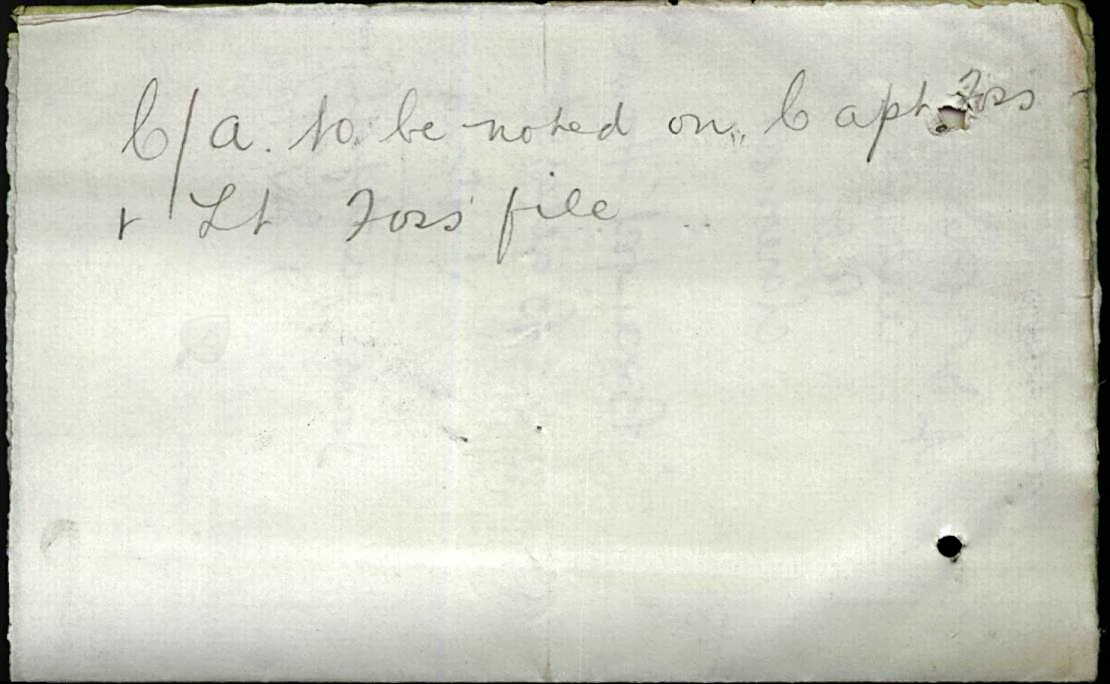 C/a. to be noted on Capt Foss
+ Lt Foss' file